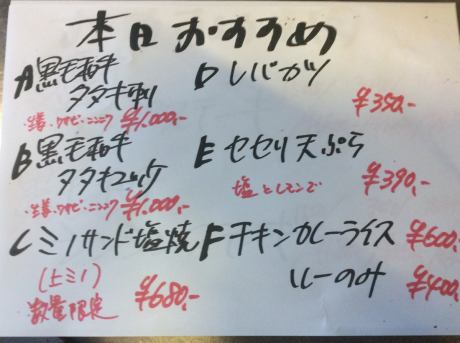 本日おすすめ
A黒毛和牛
タタキ刺
・生姜・ワサビ・ニンニク ¥1,000,-
B黒毛和牛
タタキユッケ
・生姜・ワサビ・ニンニク ¥1,000,-
Cミノサンド塩焼
(上ミノ)
数量限定 ¥680,-
Dレバカツ
¥350,-
Eセセリ天ぷら
塩とレモンで ¥390,-
Fチキンカレーライス ¥600,-
ルーのみ ¥400,-